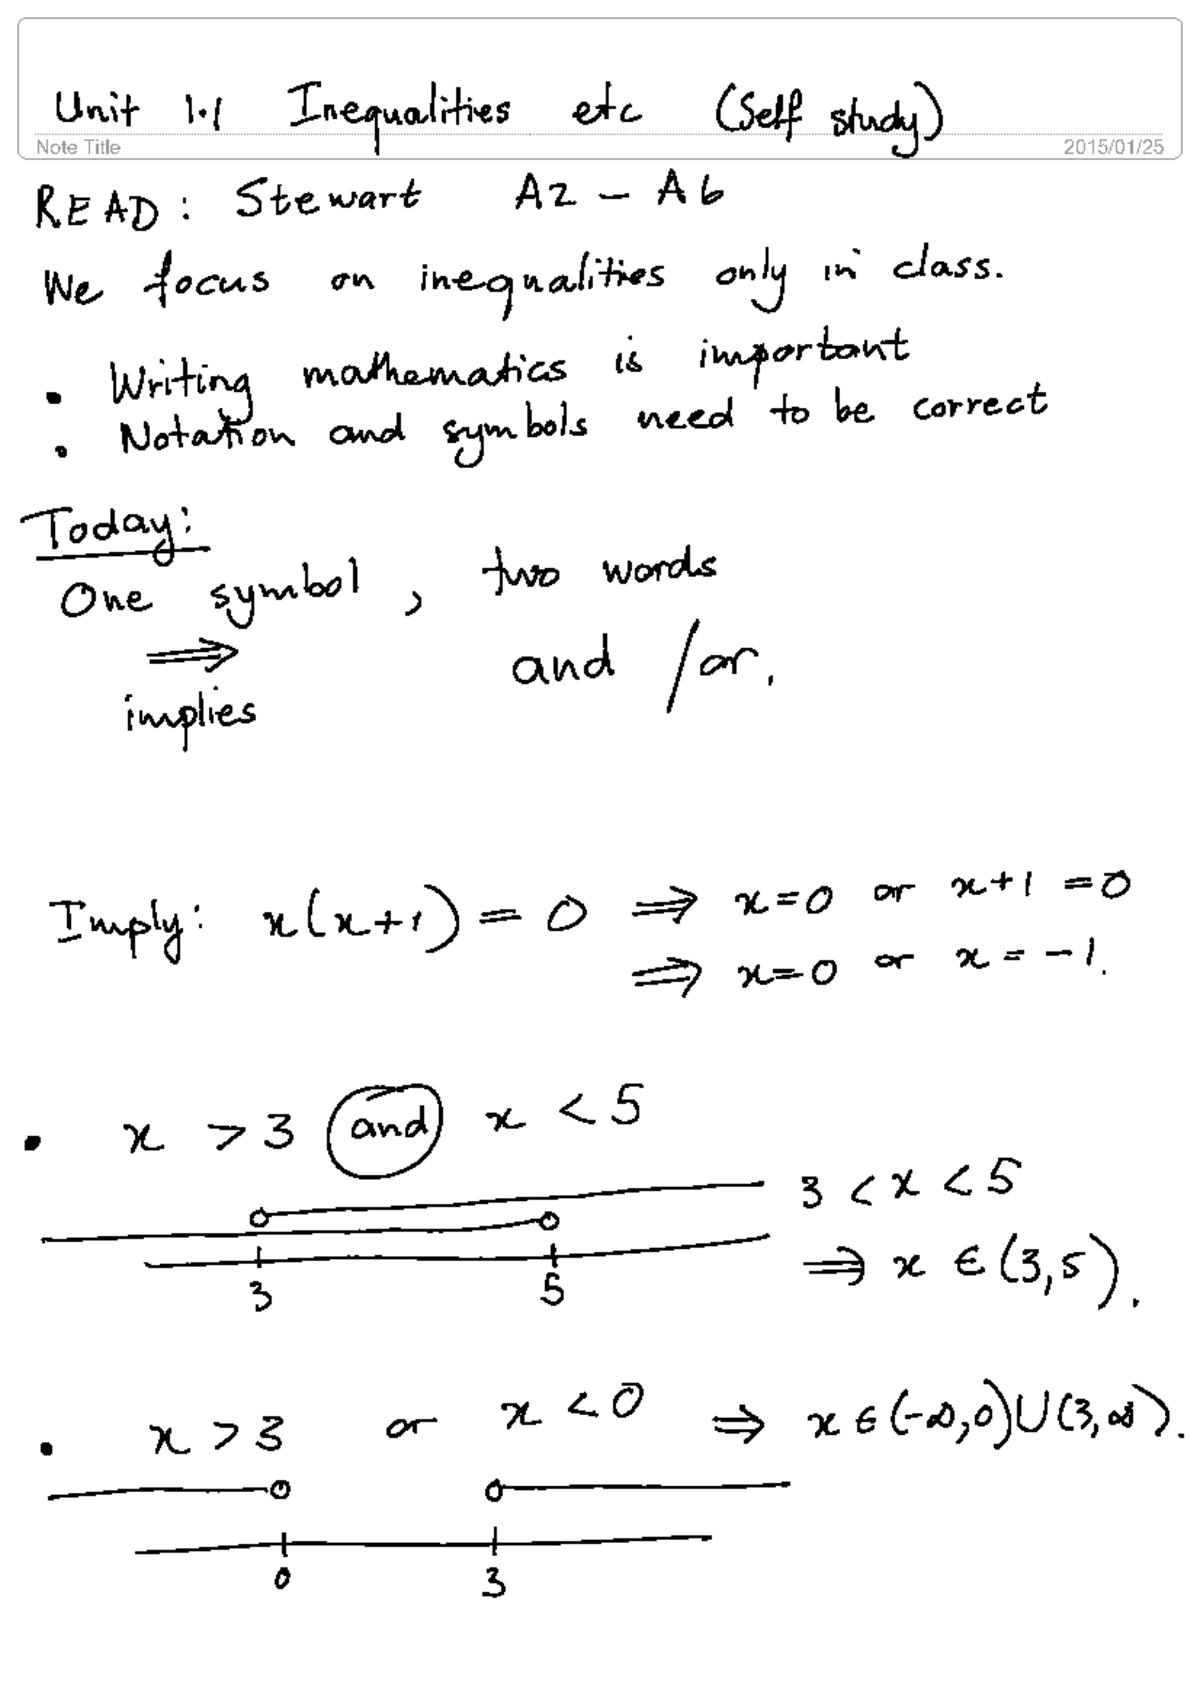 Unit 1.1 Inequalities etc (Self study)
Note Title 2015/01/25
READ: Stewart A2 – A6
We focus on inequalities only in class.
• Writing mathematics is important
• Notation and symbols need to be correct
Today:
One symbol, two words
⟹ and /or.
implies
Imply: x(x+1) = 0 ⟹ x=0 or x+1 =0
⟹ x=0 or x = -1.
• x > 3 and x < 5
3 < x < 5
⟹ x ∈ (3,5).
3 5
• x > 3 or x < 0 ⟹ x ∈ (-∞,0)∪(3,∞).
0 3